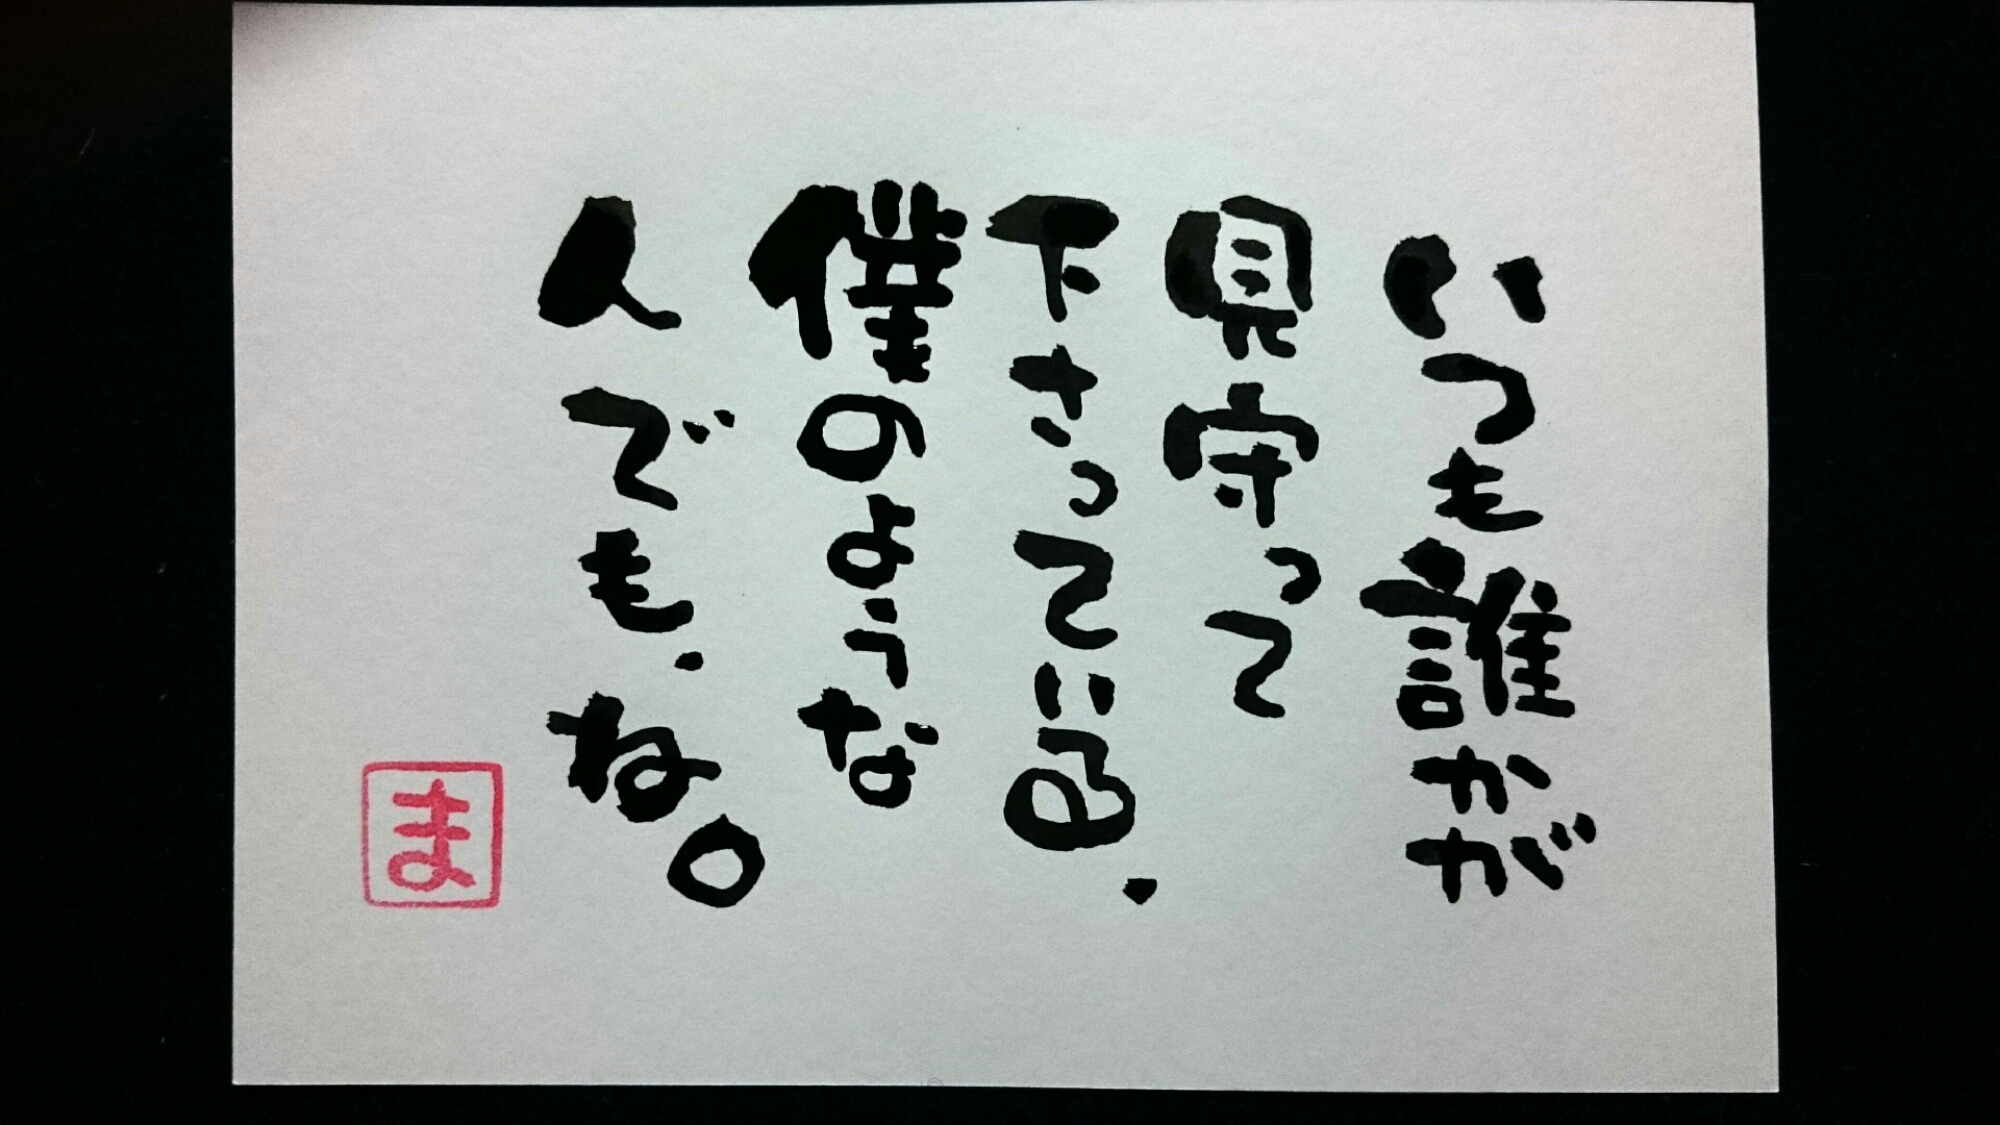 いつも誰かが
見守って
下さっている.
僕のような
人でも.ね。
ま